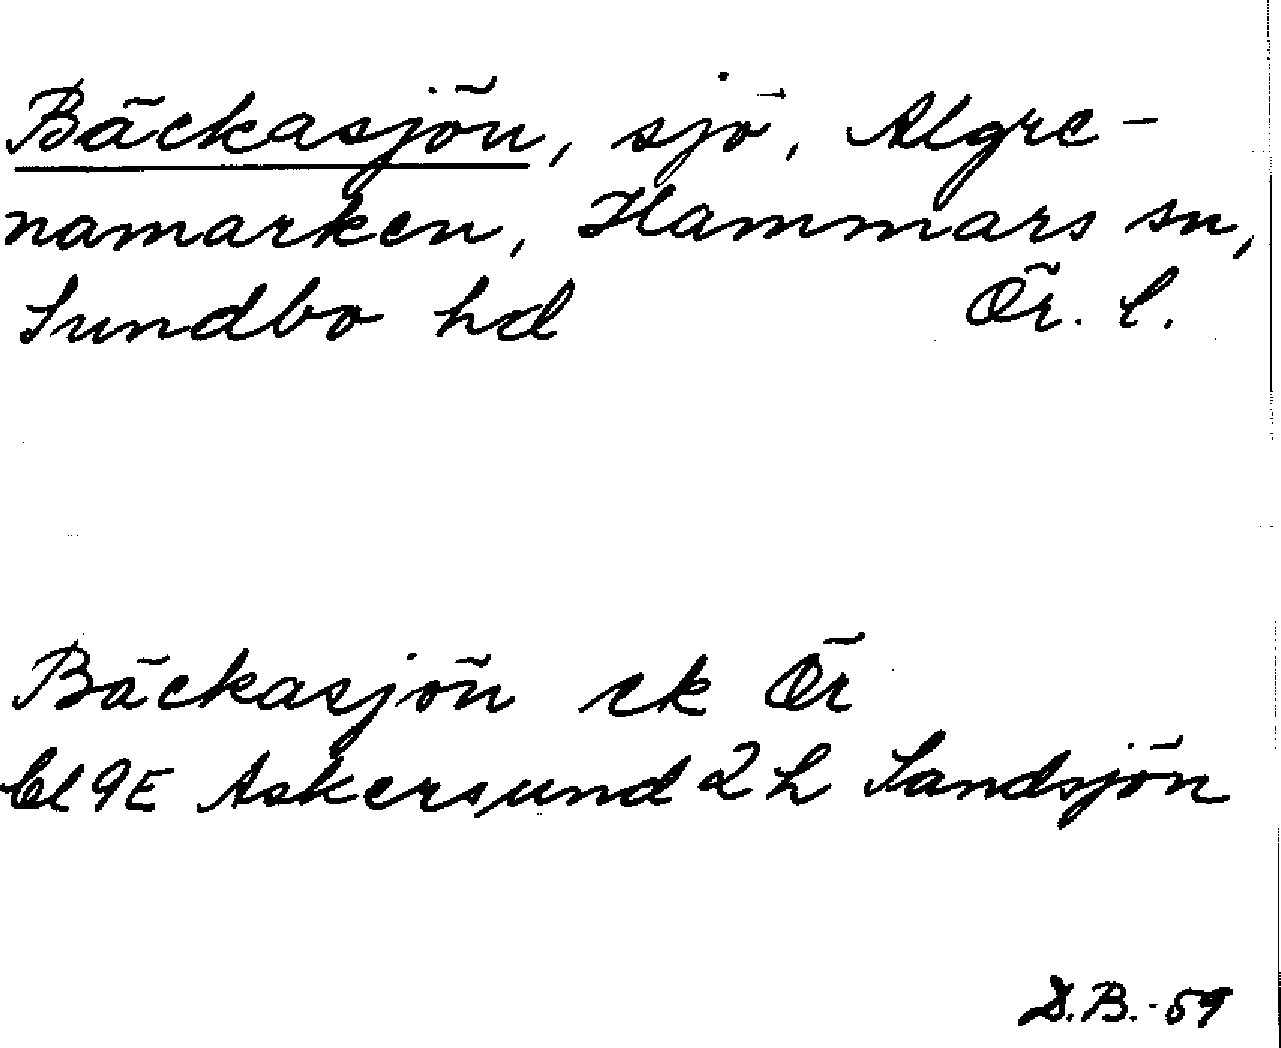 Bäckasjön, sjö, Algre-
namarken, Hammars sn,
Sundbo hd Ör. l.
Bäckasjön ek Ör
9E Askersund 2h Sandsjön
D.B.-59